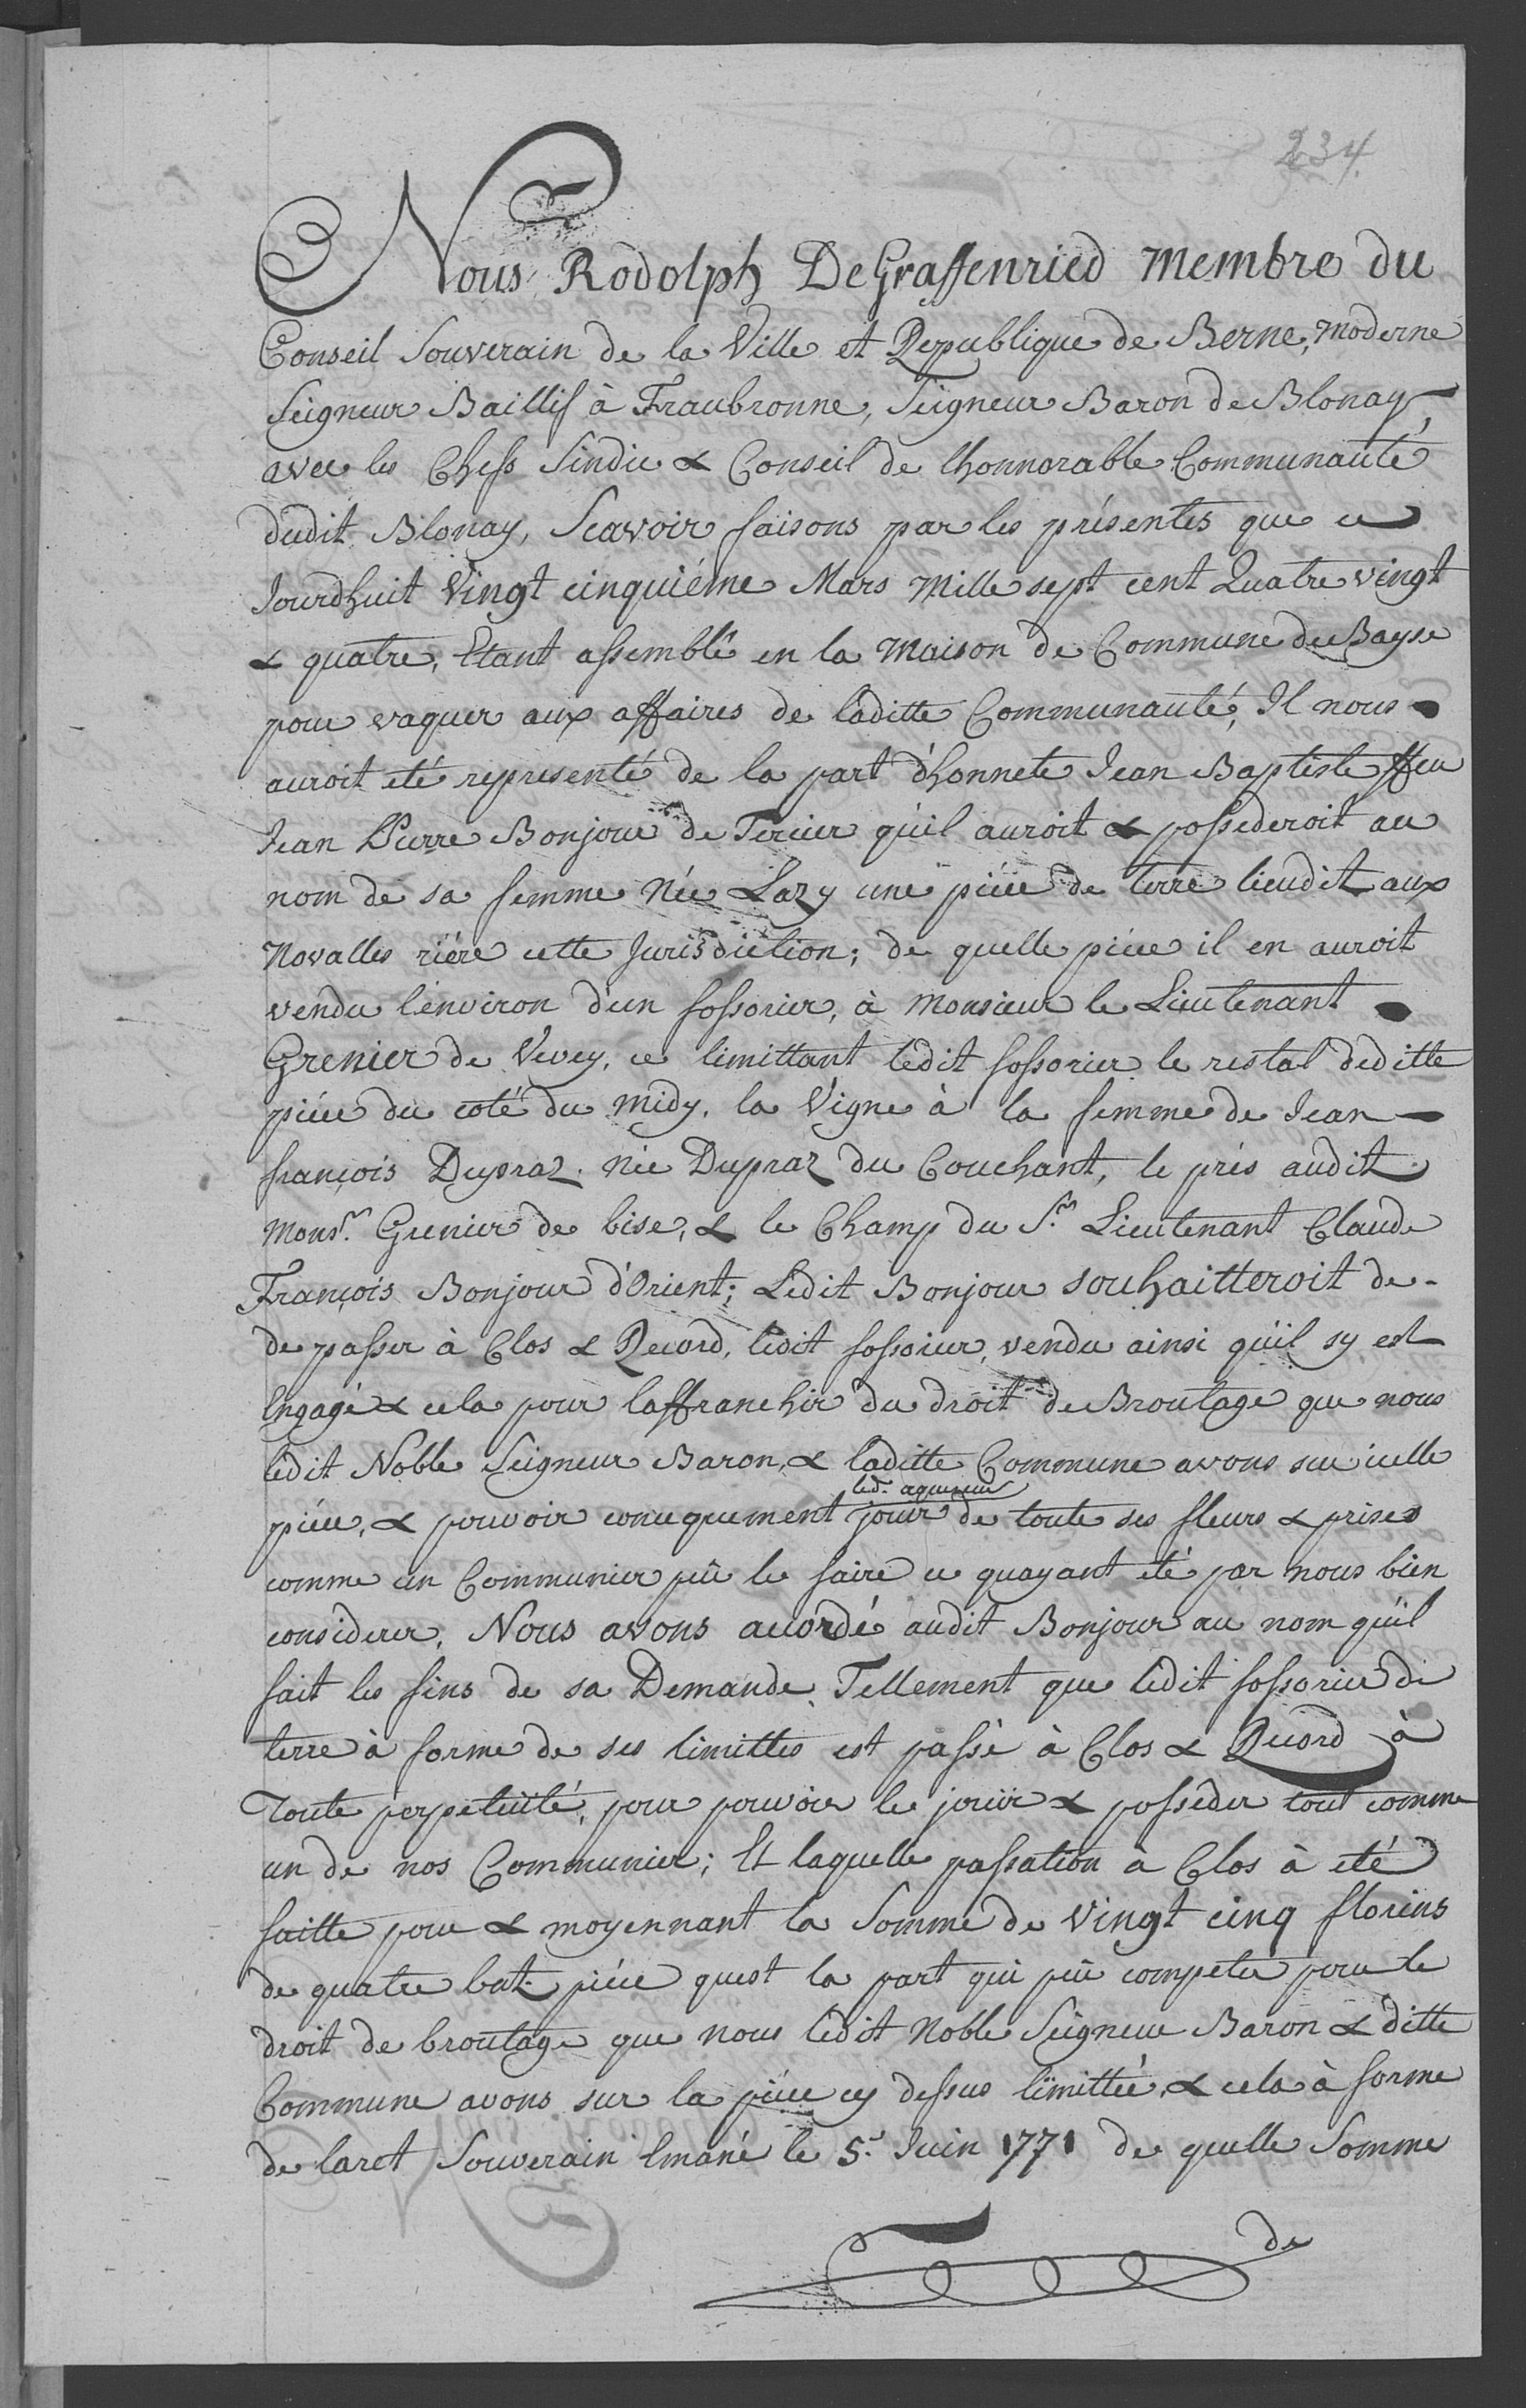 234.
Nous Rodolph DeGraffenried Membre du
Conseil Souverain de la Ville et Republique de Berne, Moderne
Seigneur Baillif à Fraubronne, Seigneur Baron de Blonay
avec les Chefs Sindic & Conseil de lhonnorable Communauté
dudit Blonay, Scavoir faisons par les présentes que ce
Jourdhuit Vingt cinquiéme Mars Mille sept cent Quatre vingt
& quatre, Etant assemblé en la Maison de Commune de Bayse
pour vaquer aux affaires de laditte Communauté, Il nous
auroit eté representé de la part d'honnete Jean Baptiste ffeu
Jean Pierre Bonjour de Tercier qu'il auroit & possederoit au
nom de sa femme Née Lazy une piéce de terre lieudit aux
Novalles riére cette Jurisdiction; de quelle piéce il en auroit
vendu l'environ d'un fossorier, à Monsieur le Lieutenant
Grenier de Vevey, ce limittant ledit fossorier le restat deditte
piéce du coté du midy, la Vigne à la femme de Jean
françois Dupraz née Dupraz du Couchant, le prés audit
Monsr. Grenier de bise, & le Champ du Sr. Lieutenant Claude
François Bonjour d'Orient; Ledit Bonjour souhaitteroit de
de passer à Clos & Record, ledit fossorier, vendu ainsi qu'il sy est
Engagé & cela pour laffranchir du droit de Broutage que nous
ledit Noble Seigneur Baron, & laditte Commune avons sur icelle
led. aquereur
piéce, & pouvoir consequement jouir de toute ses fleurs & prises
comme un Communier peû le faire ce quayant eté par nous bien
considerer, Nous avons accordé audit Bonjour au nom qu'il
fait les fins de sa Demande, Tellement que ledit fossorier de
terre à forme de ses limittes est passé à Clos & Record à
Toute perpetuité, pour pouvoir le jouir & posséder tout comme
un de nos Communier; Et laquelle passation à Clos à eté
faitte pour & moyennant la Somme de Vingt cinq florins
de quatre bat. piéce quest la part qui peû competer pour le
droit de broutage que nous ledit Noble Seigneur Baron & ditte
Commune avons sur la piéce cy dessus limittée, & cela à forme
de laret Souverain Emané le 5.e Juin 1771 de quelle Somme
de